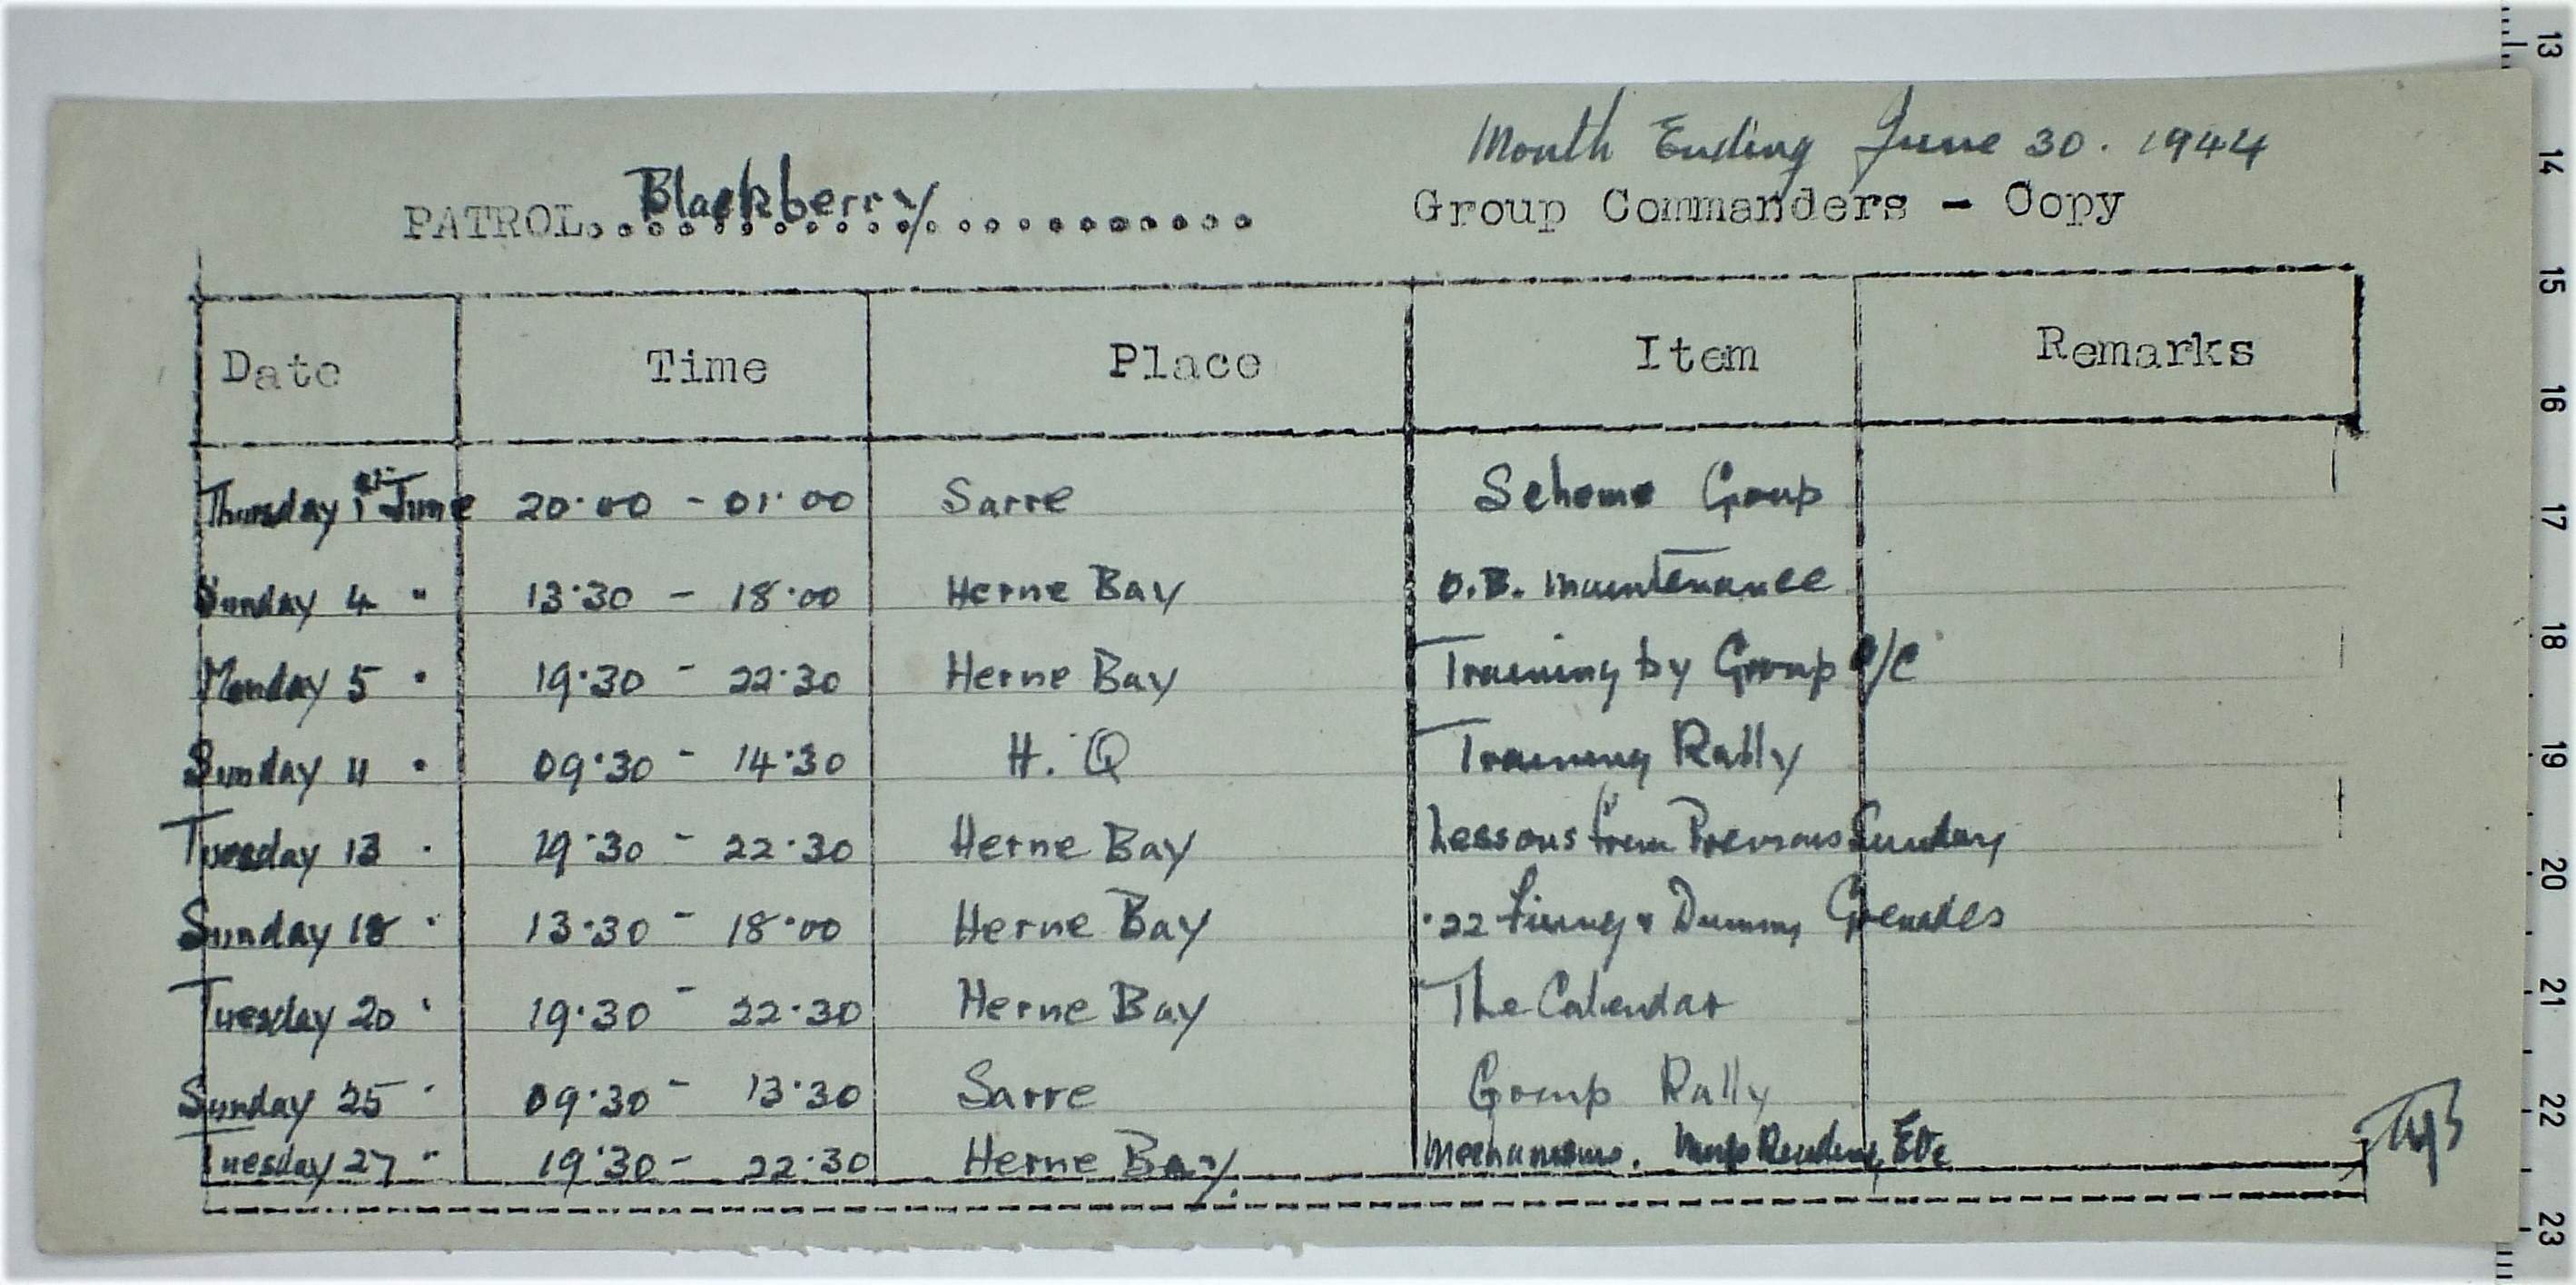 Month Ending June 30. 1944
PATROL. Blackberry Group Commanders - Copy
Date Time Place Item Remarks
Thursday 1st June 20.00 - 01.00 Sarre Scheme Group
Sunday 4 " 13.30 - 18.00 Herne Bay O.B. maintenance
Monday 5 " 19.30 - 22.30 Herne Bay Training by Group O/C
Sunday 11 " 09.30 - 14.30 H.Q Training Rally
Tuesday 13 " 19.30 - 22.30 Herne Bay Lessons from Previous Sunday
Sunday 18 " 13.30 - 18.00 Herne Bay .22 Firing & Dummy Grenades
Tuesday 20 " 19.30 - 22.30 Herne Bay The Calendar
Sunday 25 " 09.30 - 13.30 Sarre Group Rally
Tuesday 27 " 19.30 - 22.30 Herne Bay. Mechanisms. Map Reading Etc
13
14
15
16
17
18
19
20
21
22
23